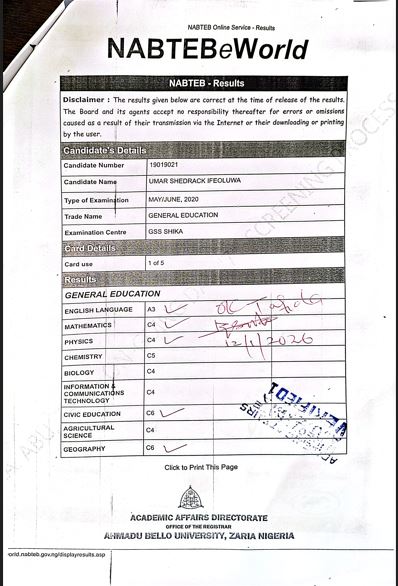 NABTEB Online Service - Results
NABTEBeWorld
NABTEB - Results
Disclaimer : The results given below are correct at the time of release of the results.
The Board and its agents accept no responsibility thereafter for errors or omissions
caused as a result of their transmission via the Internet or their downloading or printing
by the user.
Candidate's Details
Candidate Number 19019021
Candidate Name UMAR SHEDRACK IFEOLUWA
Type of Examination MAY/JUNE, 2020
Trade Name GENERAL EDUCATION
Examination Centre GSS SHIKA
Card Details
Card use 1 of 5
Results
GENERAL EDUCATION
ENGLISH LANGUAGE A3
OK
MATHEMATICS C4
PHYSICS C4
12/1/2026
CHEMISTRY C5
BIOLOGY C4
INFORMATION &
COMMUNICATIONS C4
TECHNOLOGY
CIVIC EDUCATION C6
VERIFIED
AGRICULTURAL C4
SCIENCE
GEOGRAPHY C6
Click to Print This Page
SCREENING PROCESS
ACADEMIC AFFAIRS DIRECTORATE
OFFICE OF THE REGISTRAR
AHMADU BELLO UNIVERSITY, ZARIA NIGERIA
orld.nabteb.gov.ng/displayresults.asp